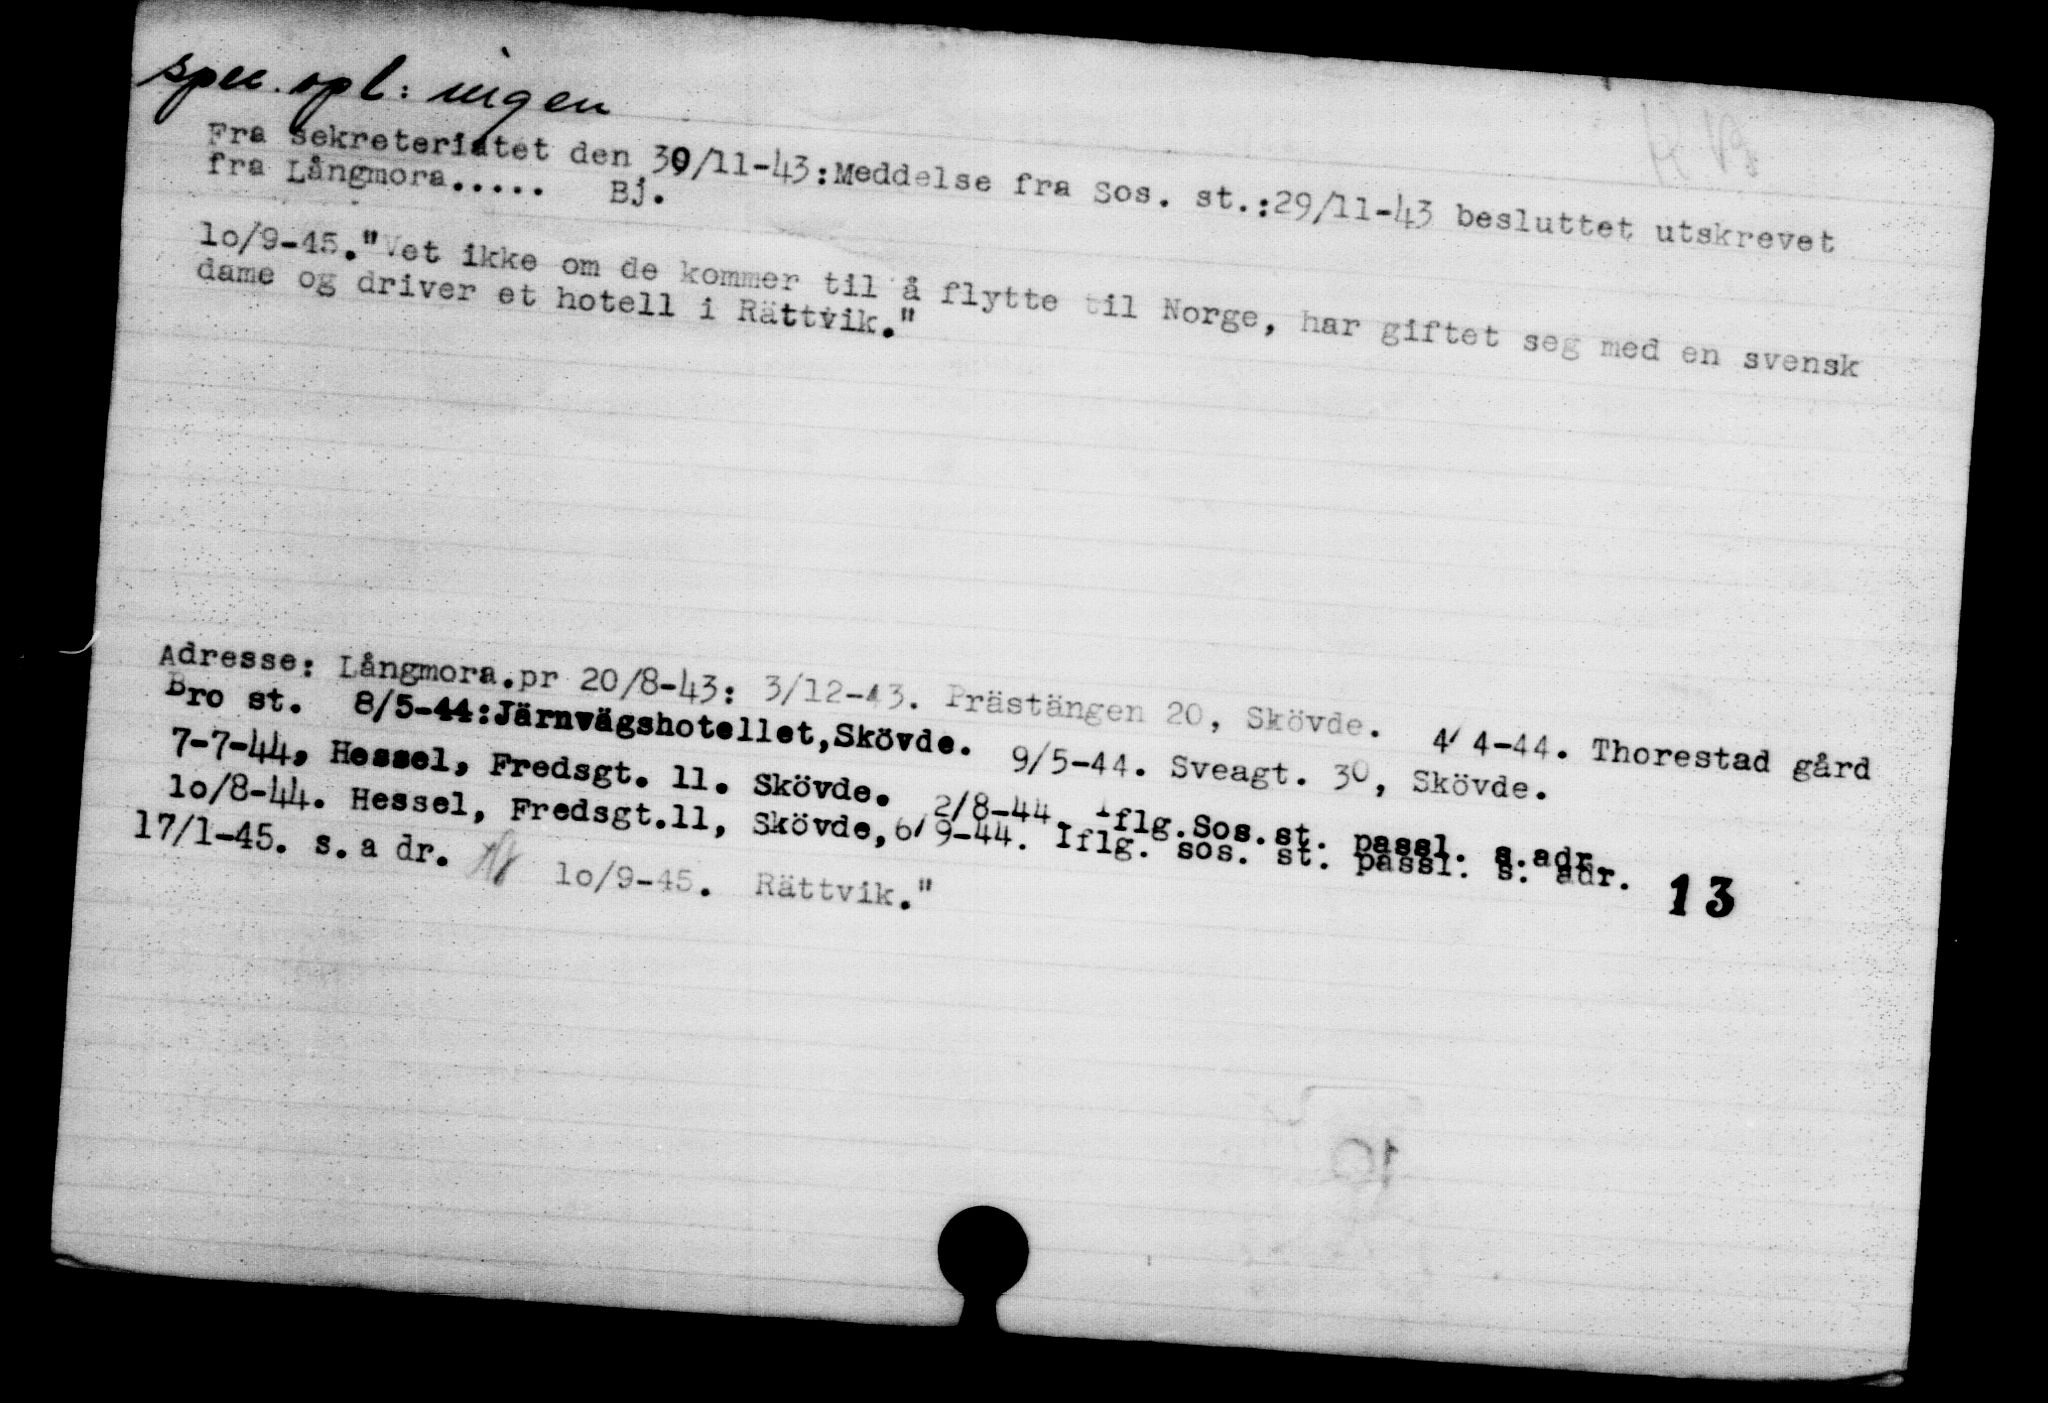 spec. opl: ingen
Fra sekreteriatet den 30/11-43:Meddelse fra Sos. st.:29/11-43 besluttet utskrevet
fra Långmora..... Bj.
lo/9-45."Vet ikke om de kommer til å flytte til Norge, har giftet seg med en svensk
dame og driver et hotell i Rättvik."
Adresse: Långmora.pr 20/8-43: 3/12-43. Prästängen 20, Skövde. 4/ 4-44. Thorestad gård
Bro st. 8/5-44:Järnvägshotellet,Skövde. 9/5-44. Sveagt. 30, Skövde.
7-7-44, Hessel, Fredsgt. 11. Skövde. 2/8-44. Iflg.Sos.st. passl. s.adr.
lo/8-44. Hessel, Fredsgt.11, Skövde,6/ 9-44. Iflg. sos. st. passl. s. adr.
17/1-45. s.a dr. lo/9-45. Rättvik."
13
10